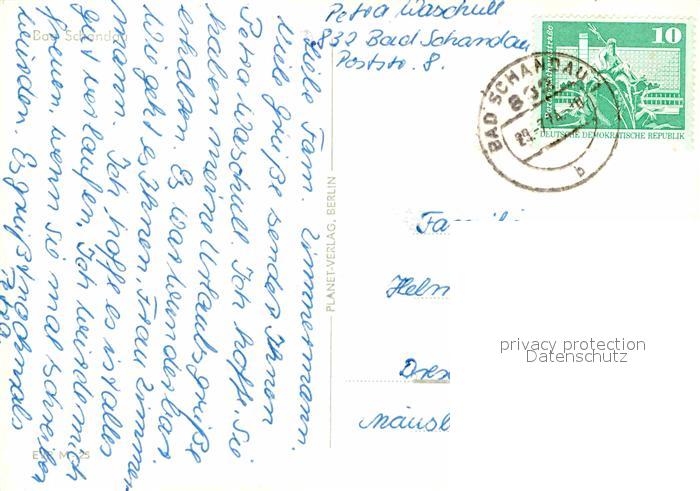 Bad Schandau
Liebe Fam. Zimmermann.
Viele Grüße sendet Ihnen
Petra Waschull. Ich hoffe, Sie
haben meine Urlaubsgrüße
erhalten. Es war wunderbar.
Wie geht es Ihnen, Frau Zimmer
mann. Ich hoffe es ist alles
gut verlaufen. Ich würde mich
freuen, wenn Sie mal schreiben
würden. Es grüßt nochmals
EVP M 25
PLANET-VERLAG, BERLIN
Petra Waschull
832 Bad Schandau
Poststr. 8.
10
DEUTSCHE DEMOKRATISCHE REPUBLIK
BAD SCHANDAU 1
832
b
Helm
Dres
Mäusb
privacy protection
Datenschutz